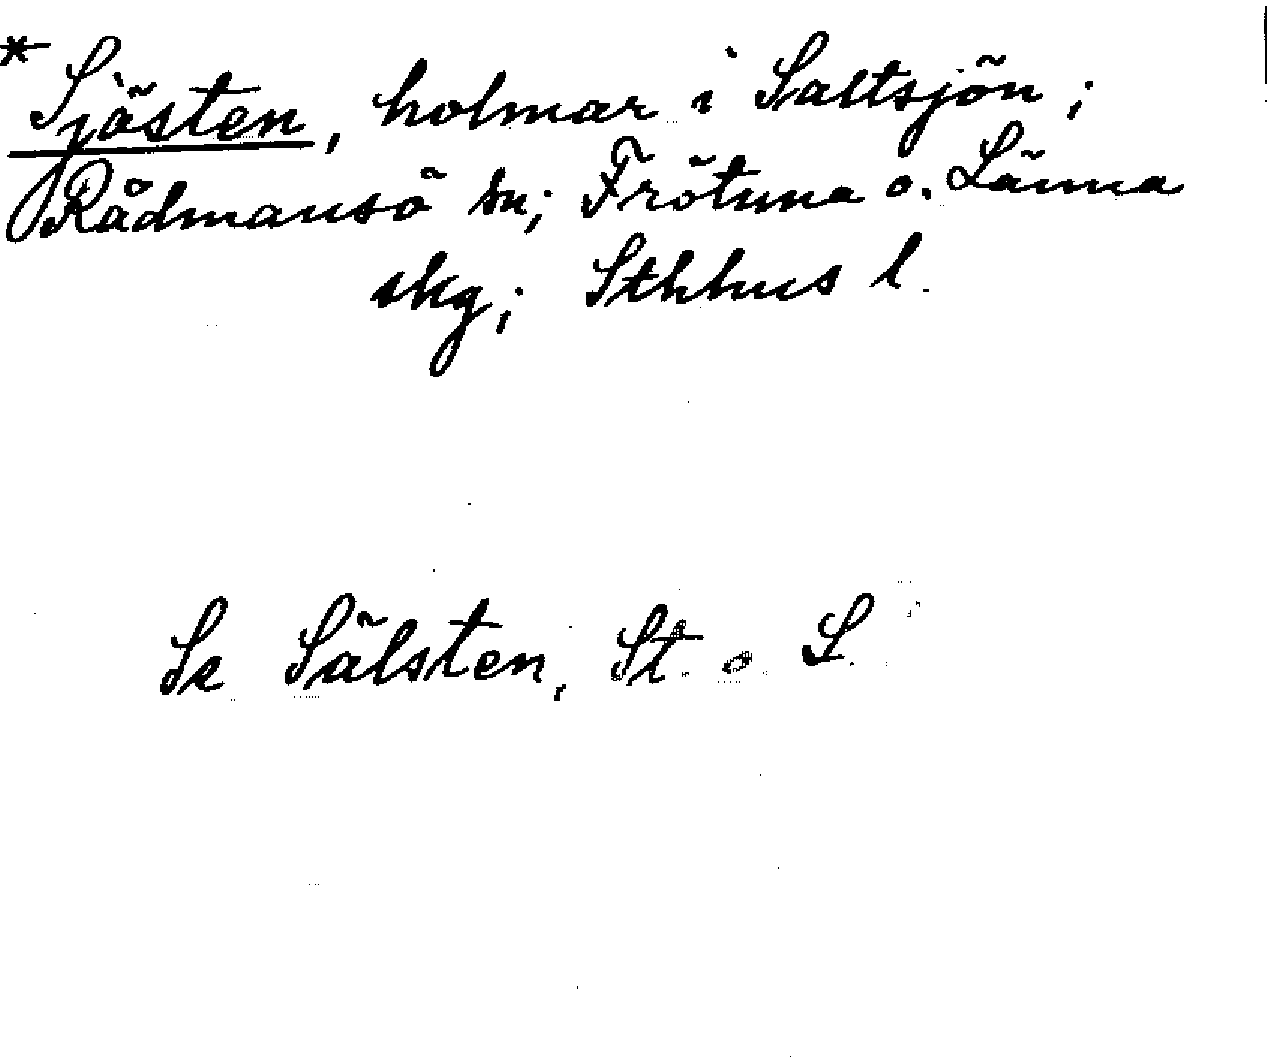 * Sjösten, holmar i Saltsjön;
Rådmansö sn; Frötuna o. Länna
skg; Sthlms l.
Se Sälsten, St. o L.